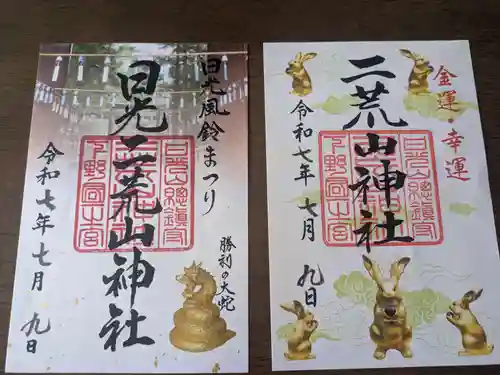 日光風鈴まつり
日光二荒山神社
令和七年七月九日
勝利の大蛇
日光山総鎮守
下野国一之宮
金運・幸運
二荒山神社
令和七年七月九日
日光山総鎮守
下野国一之宮